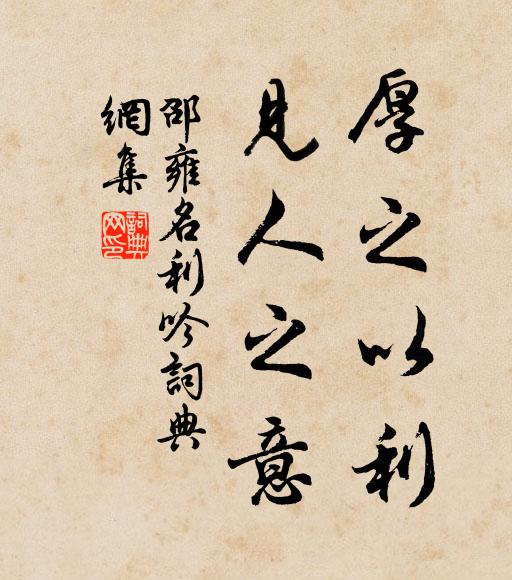 厚之以利
見人之意
邵雍名利吟詞典
網集
詞典
网印